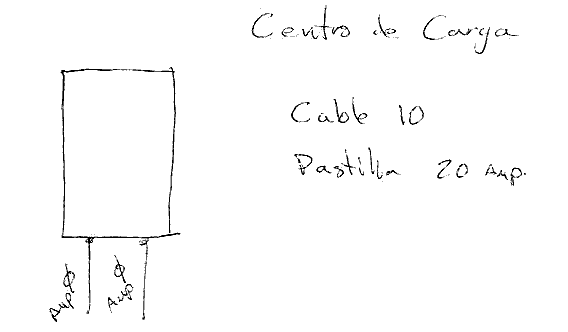 Centro de Carga
Cable 10
Pastilla 20 Amp.
Amp Ø
Amp Ø